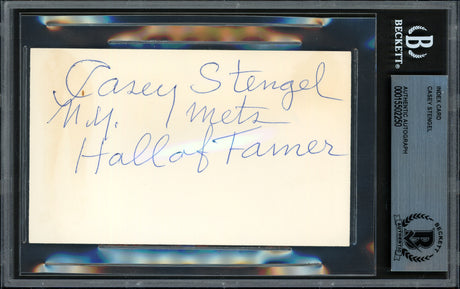 Casey Stengel
N.Y. Mets
Hall of Famer
BECKETT
INDEX CARD
CASEY STENGEL
AUTHENTIC AUTOGRAPH
00015502250
BECKETT
AUTHENTICATED